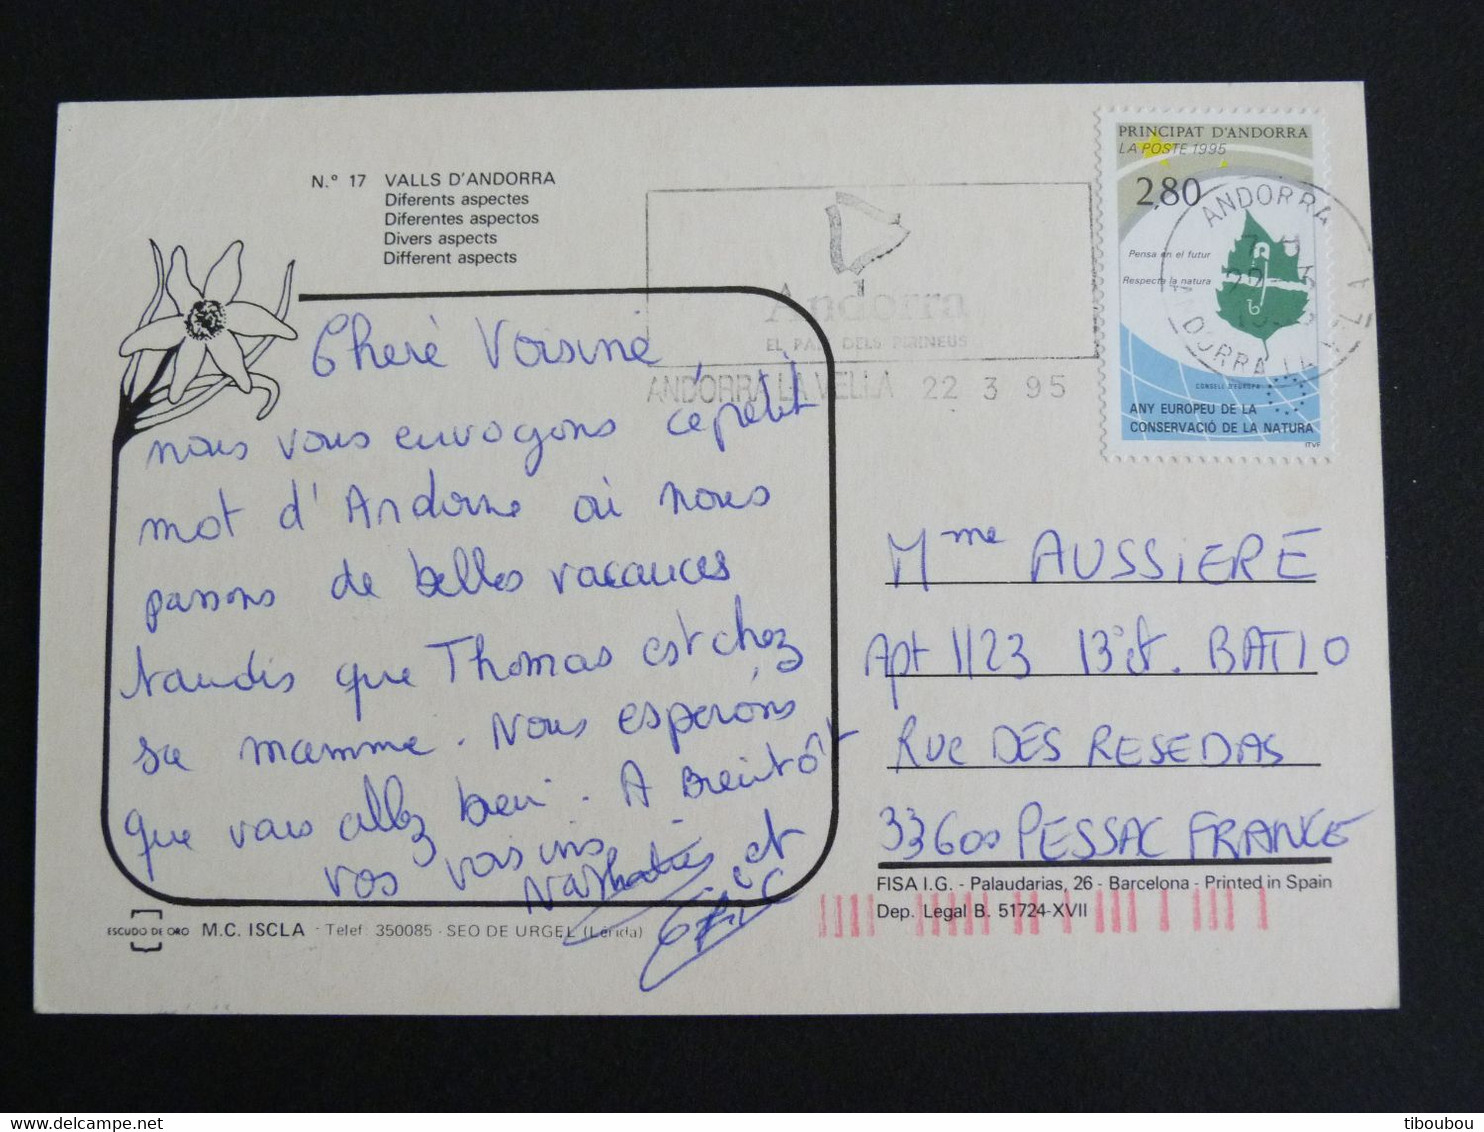 N.° 17 VALLS D'ANDORRA
Diferents aspectes
Diferentes aspectos
Divers aspects
Different aspects
PRINCIPAT D'ANDORRA
LA POSTE 1995
2,80
Pensa en el futur
Respecta la natura
CONSELL D'EUROPA
ANY EUROPEU DE LA
CONSERVACIÓ DE LA NATURA
ITVF
ANDORRA
ANDORRA LA VELLA
Andorra
EL PAÍS DELS PIRINEUS
ANDORRA LA VELLA 22 3 95
Cheré Voisine,
nous vous envoyons ce petit
mot d'Andorre où nous
passons de belles vacances
tandis que Thomas est chez
sa mamme. Nous espérons
que vous allez bien. A Bientôt
vos voisins
Nathalie et
Eric
Mme AUSSIERE
Apt 1123 13°ét. BAT 10
RUE DES RESEDAS
33600 PESSAC FRANCE
FISA I.G. - Palaudarias, 26 - Barcelona - Printed in Spain
Dep. Legal B. 51724-XVII
ESCUDO DE ORO M.C. ISCLA - Telef. 350085 - SEO DE URGEL (Lérida)
tiboubou